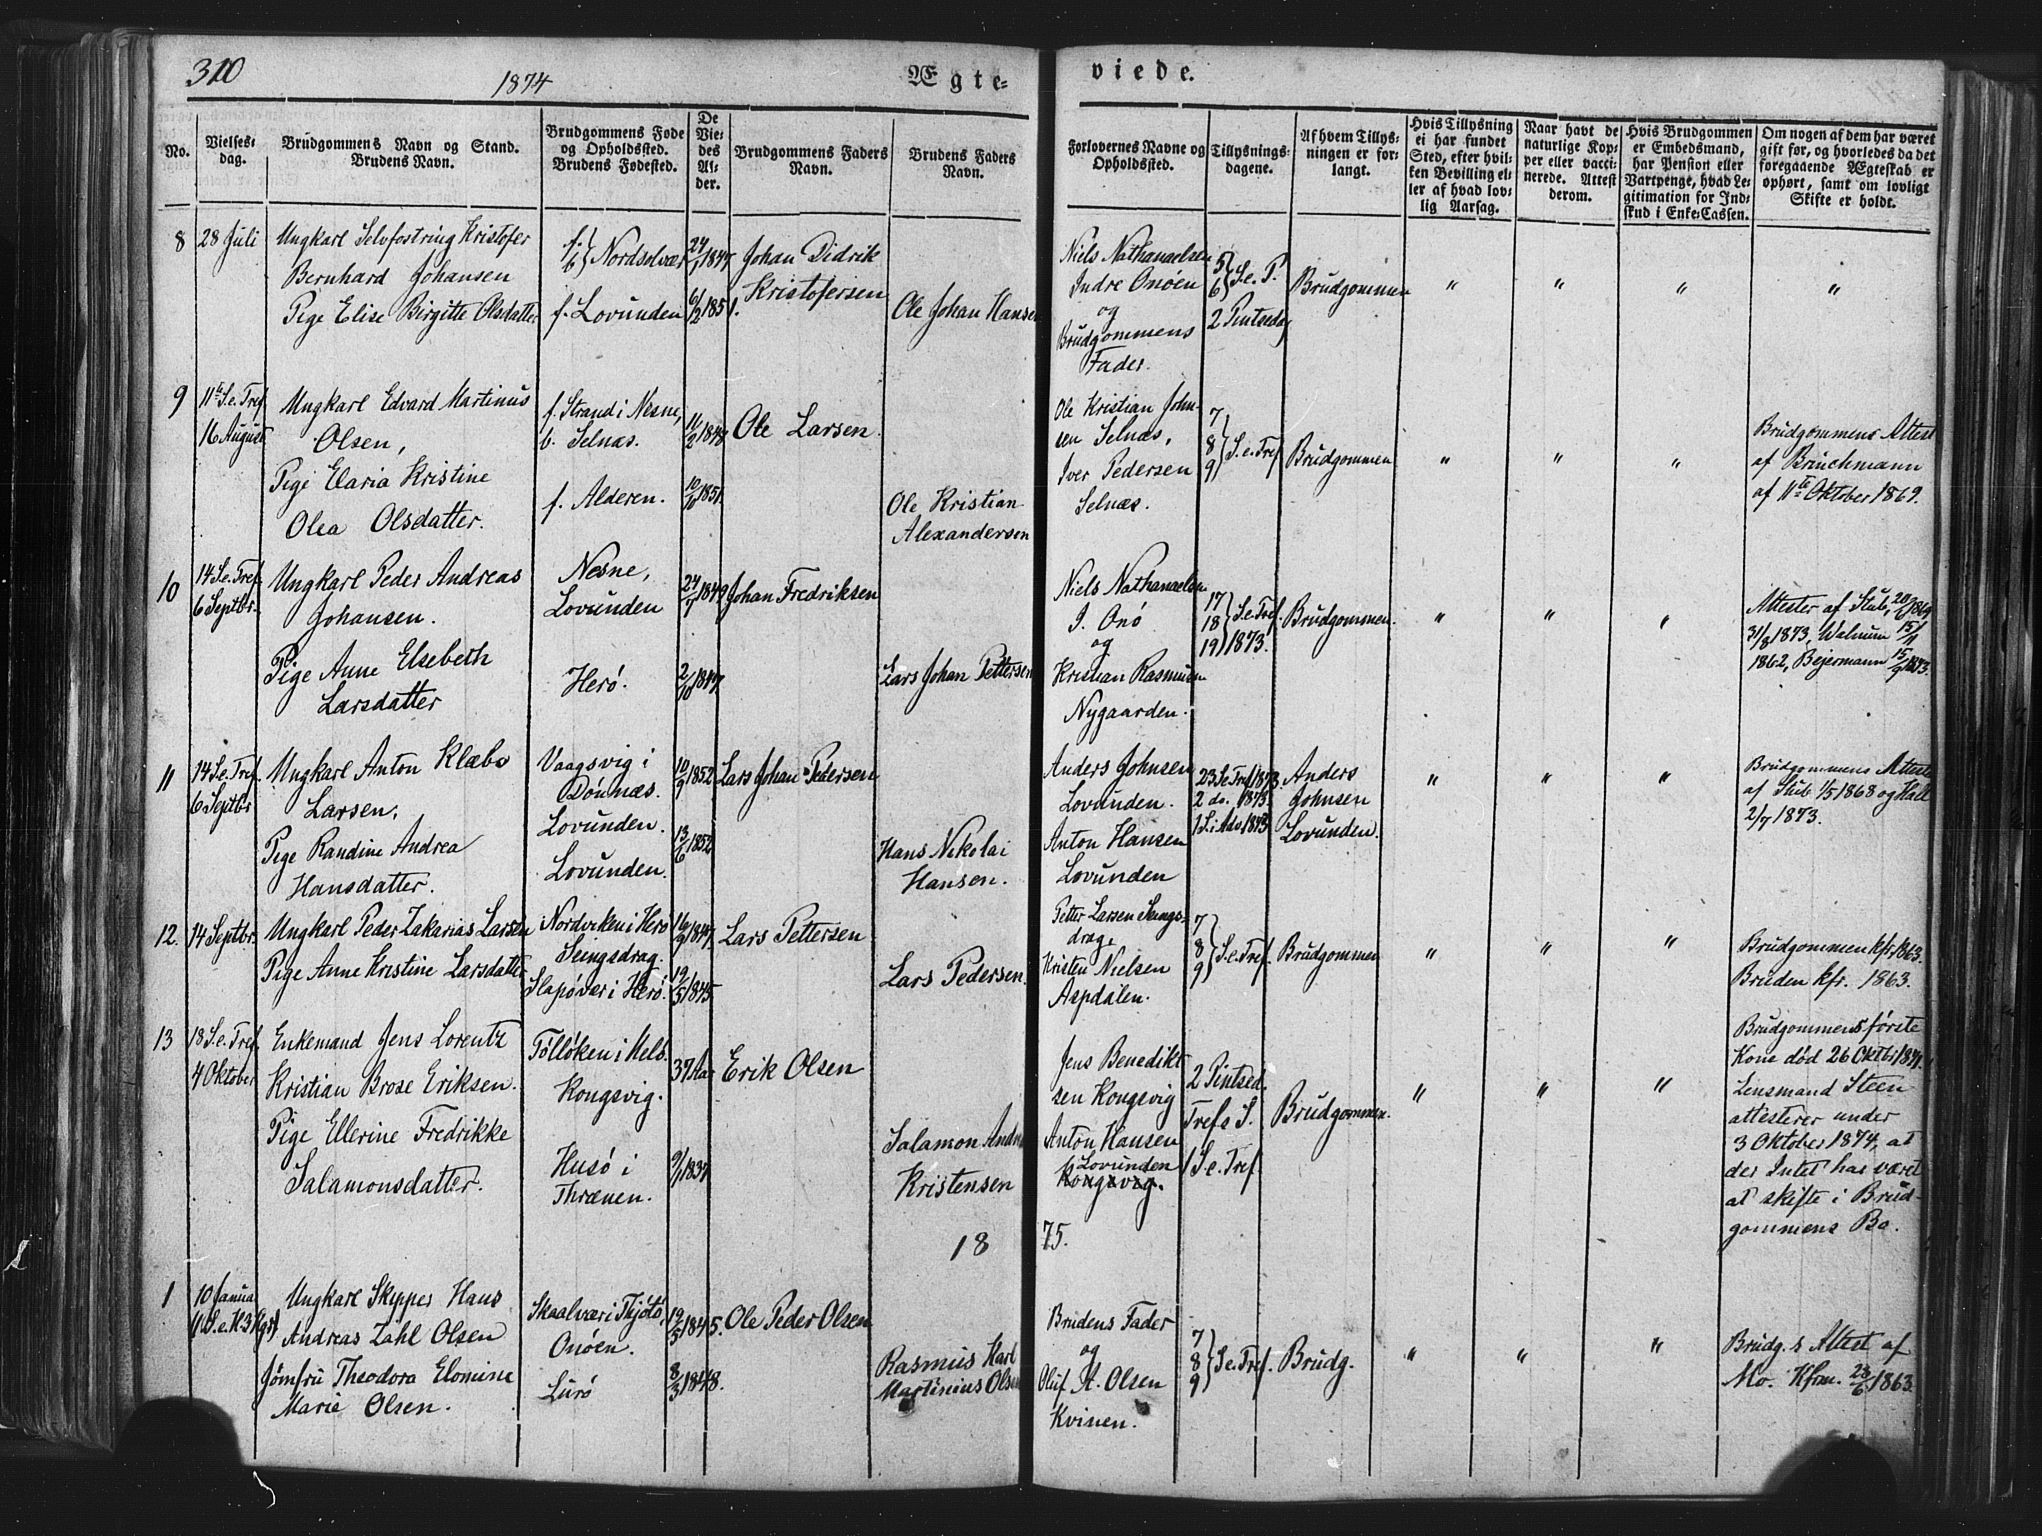 310
1874
Ægte=
viede.
No.
Vielses=
dag.
Brudgommens Navn og Stand.
Brudens Navn.
Brudgommens Føde
og Opholdsted.
Brudens Fødested.
De
Vie=
des
Al=
der.
Brudgommens Faders
Navn.
Brudens Faders
Navn.
Forlovernes Navne og
Opholdsted.
Tillysnings=
dagene.
Af hvem Tillys=
ningen er for=
langt.
Hvis Tillysning
ei har fundet
Sted, efter hvil=
ken Bevilling el=
ler af hvad lov=
lig Aarsag.
Naar havt de
naturlige Kop=
per eller vacci=
nerede. Attest
derom.
Hvis Brudgommen
er Embedsmand,
har Pension eller
Vartpenge, hvad Le=
gitimation for Ind=
skud i Enke=Cassen.
Om nogen af dem har været
gift før, og hvorledes da det
foregaaende Ægteskab er
ophørt, samt om lovligt
Skifte er holdt.
8
28 Juli
Ungkarl Selvfostring Kristofer
Bernhard Johansen
Pige Elise Birgitte Olsdatter
f. b. } Nordsolvær
f. Lovunden
24/1 1847
6/2 1851.
Johan Didrik
Kristofersen
Ole Johan Hansen
Niels Nathanaelsen
Indre Onöen
og
Brudgommens
Fader.
5
6 } S. e. P.
2 Pintsedag
Brudgommen
" " " "
9
11te S. e. Tref.
16 August
Ungkarl Edvard Martinus
Olsen,
Pige Elaria Kristine
Olea Olsdatter.
f. Strand i Nesne,
b. Selnæs.
f. Alderen.
11/2 1848
10/10 1851
Ole Larsen
Ole Kristian
Alexandersen
Ole Kristian John-
sen Selnæs,
Iver Pedersen
Selnæs.
7
8
9 } S. e. Tref.
Brudgommen
" " "
Brudgommens Attest
af Brinchmann
af 11te Oktober 1869.
10
14 S. e. Tref.
6 Septbr.
Ungkarl Peder Andreas
Johansen.
Pige Anne Elsebeth
Larsdatter
Nesne,
Lovunden
Herö.
24/7 1849
2/10 1847
Johan Fredriksen
Lars Johan Pettersen
Niels Nathanaelsen
I. Onö
og
Kristian Rasmusen
Nygaarden.
17
18
19 } S. e. Tref. 1873.
Brudgommen.
" " "
Attester af Stub,
31/8 1873, Walnum 15/1
1862, Bejermann 15/9 1873.
11
14 S. e. Tref.
6 Septbr.
Ungkarl Anton Klæbo
Larsen.
Pige Randine Andrea
Hansdatter.
Vaagsvig i
Dönnæs.
Lovunden.
Lovunden.
10/9 1852
13/6 1852
Lars Johan Pedersen
Hans Nikolai
Hansen.
Anders Johnsen
Lovunden.
Anton Hansen
Lovunden
23 S. e. Tref 1873.
2 do. 1873.
1 S. i Adv 1873
Anders
Johnsen
Lovunden.
" " "
Brudgommens Attester
af Stub 1/5 1868 og Hall
2/7 1873.
12.
14 Septbr.
Ungkarl Peder Zakarias Larsen
Pige Anne Kristine Larsdatter
Nordviken i Herö
Seingsdrag.
Slapöver i Herö.
16/9 1847.
19/5 1845
Lars Pettersen
Lars Pedersen.
Petter Larsen Seings-
drag.
Kristen Nielsen
Aspdalen.
7
8
9 } S. e. Tref.
Brudgommen
" " "
Brudgommen kfr. 1863.
Bruden kfr. 1863.
13
18 S. e. Tref.
4 Oktober
Enkemand Jens Lorentz
Kristian Brose Eriksen.
Pige Ellerine Fredrikke
Salamonsdatter.
Tölløken i Mels.
Kongsvig.
Husö i
Thrænen.
37 Aar
9/1 1837
Erik Olsen
Salamon Andr
Kristensen
Jens Benedikt
sen Kongsvig
Anton Hansen
Lovunden
Kongsvig.
2 Pintsed.
Trefs S.
1 S. e. Tref.
Brudgommen.
" " "
Brudgommens förste
Kone död 26 Oktbr 1871.
Lensmand Steen
attesterer under
3 Oktober 1874, at
der Intet har været
at skifte i Brud-
gommens Bo.
18 75.
1
10 Januar
1 S. e. H. 3 Kgr)
Ungkarl Skipper Hans
Andreas Zahl Olsen
Jomfru Theodora Elonine
Marie Olsen.
Skaalvær i Thjötö,
Onöen.
Lurö
19/5 1845.
8/3 1848.
Ole Peder Olsen
Rasmus Karl
Martinius Olsen
Brudens Fader
og
Oluf A. Olsen
Kvinen.
7
8
9 } S. e. Tref.
Brudg.
" " "
Brudg.s Attest af
Mo. Kfrm. 28/6 1863.